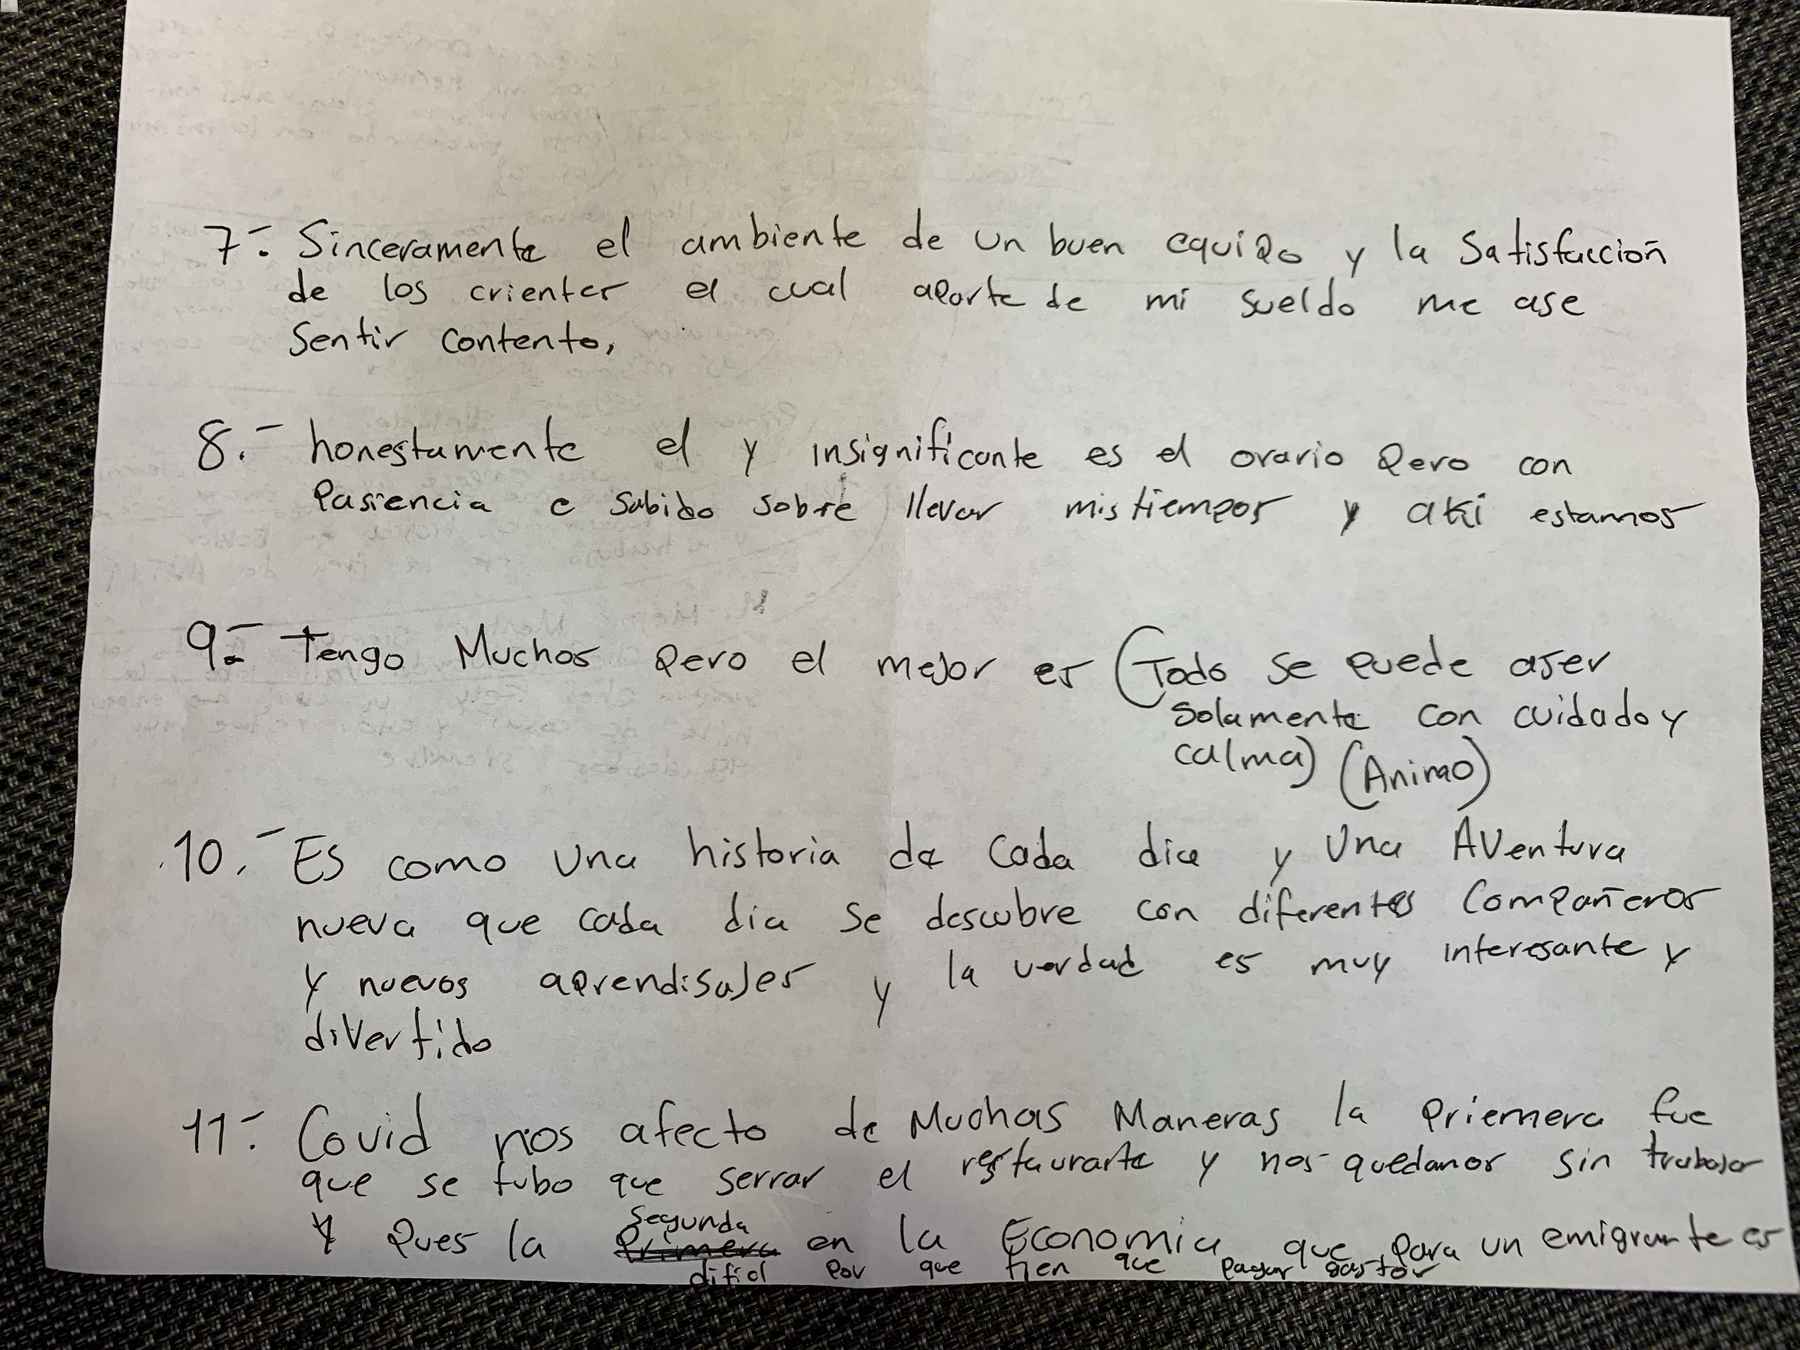 7.- Sinceramente el ambiente de un buen equipo y la satisfaccion
de los crienter el cual aparte de mi sueldo me ase
sentir contento,
8.- honestamente el y insignificante es el orario pero con
pasiencia e sabido sobre llevar mis tiempos y aki estamos
9.- Tengo Muchos pero el mejor es (Todo se puede aser
solamente con cuidado y
calma) (Animo)
10.- Es como una historia de cada dia y una Aventura
nueva que cada dia se descubre con diferentes compañeros
y nuevos aprendisajes y la verdad es muy interesante y
divertido
11.- Covid nos afecto de Muchas Maneras la priemera fue
que se tubo que serrar el restaurante y nos quedamos sin trabajo
y pues la segunda en la Economia que para un emigrante es
dificl por que tien que pagar gastos